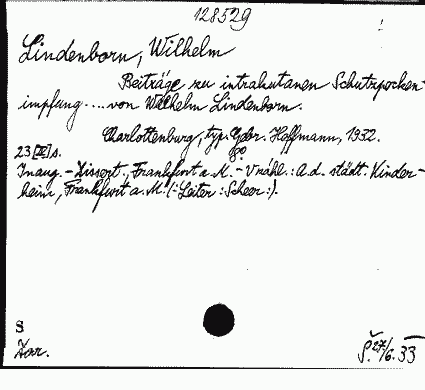 128529
Lindenborn, Wilhelm
Beiträge zu intrakutanen Schutzpocken-
impfung....von Wilhelm Lindenborn.
Charlottenburg, typ. Gebr. Hoffmann, 1932.
8°
23 [II] s.
Inaug.-Dissert., Frankfurt a. M. - Unähl.: A.d. städt. Kinder-
heim, Frankfurt a. M. (:Leiter: Scheer:).
S
Zar.
Š. 27/6. 33